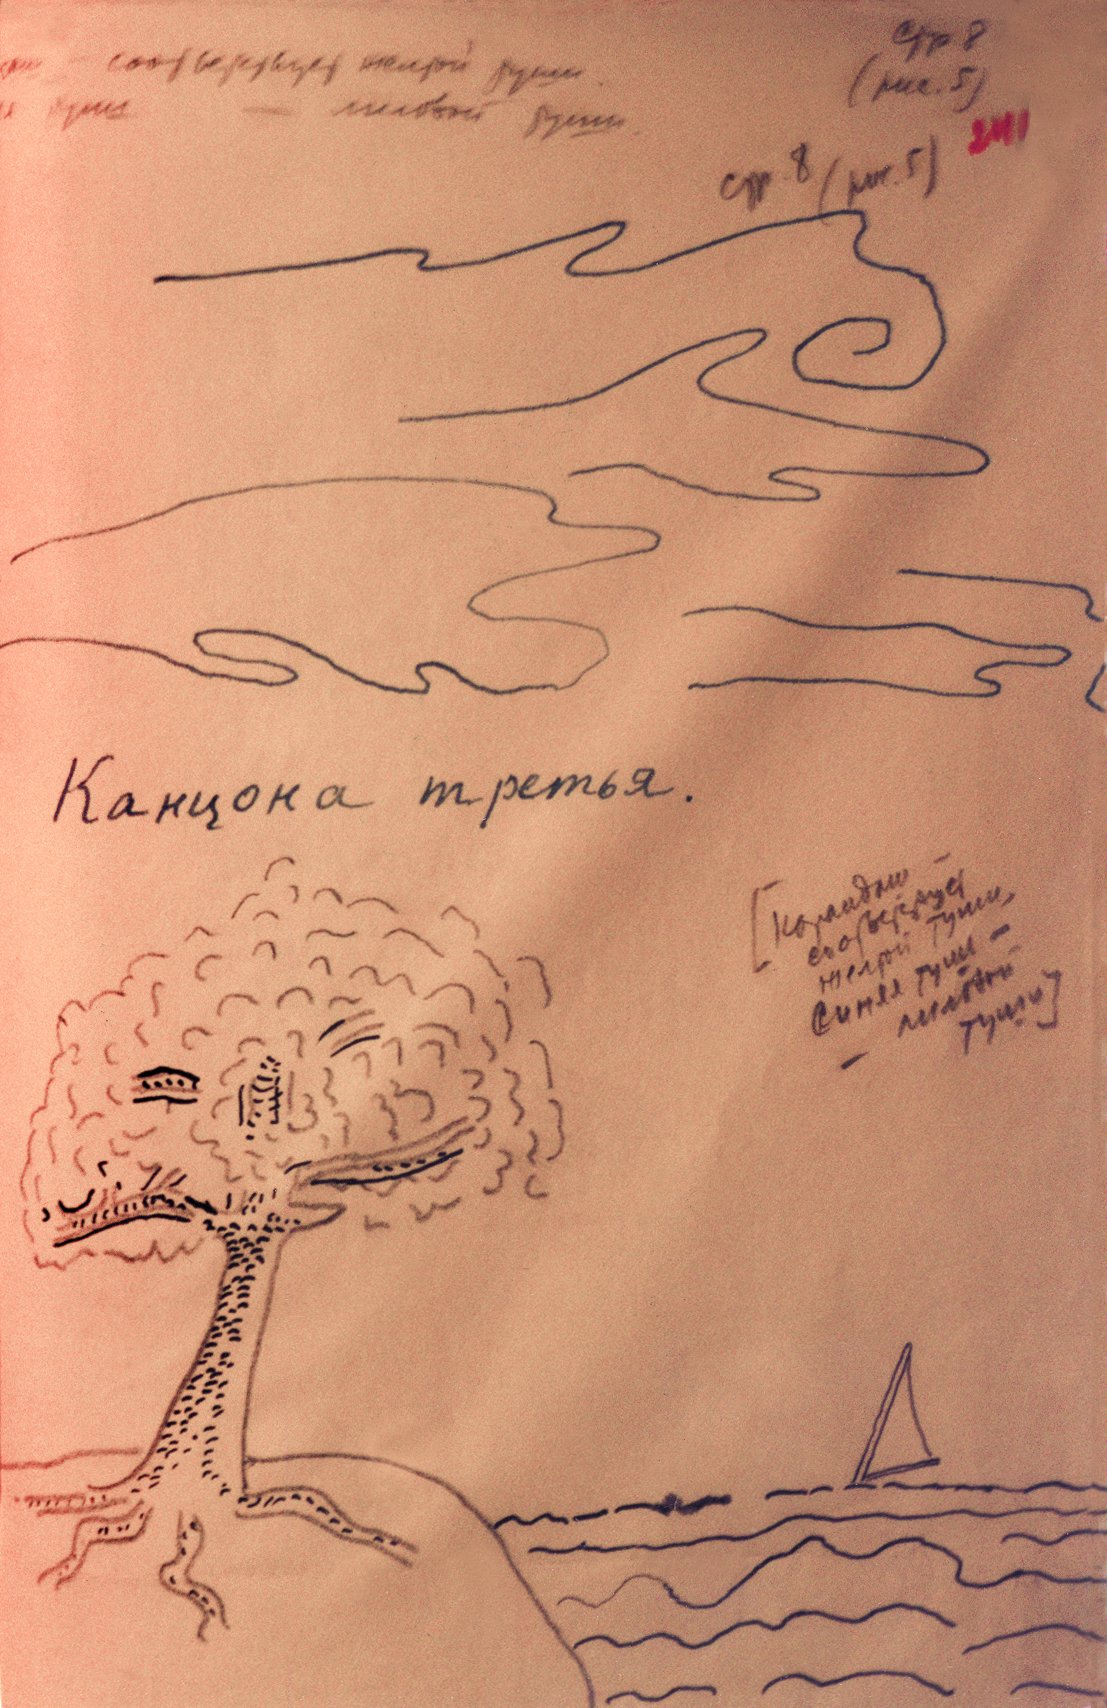 соответствует желтой туши.
туши — лиловой туши.
стр 8
(рис. 5)
стр. 8 (рис. 5)
Канцона третья.
[Карандаш
соответствует
желтой туши,
синяя тушь —
— лиловой
туши]